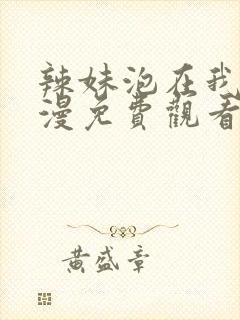 辣妹泡在我
漫免費觀看
黃盛章